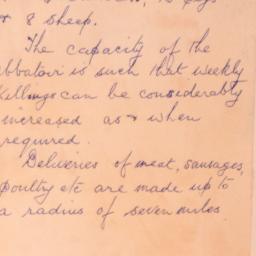 & 8 sheep.
The capacity of the
abbatoir is such that weekly
killings can be considerably
increased as & when
required.
Deliveries of meat, sausages,
poultry etc are made up to
a radius of seven miles.